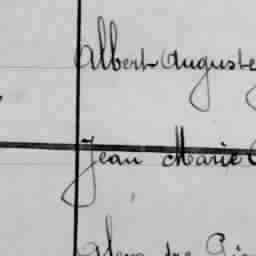 Albert Auguste
Jean Marie